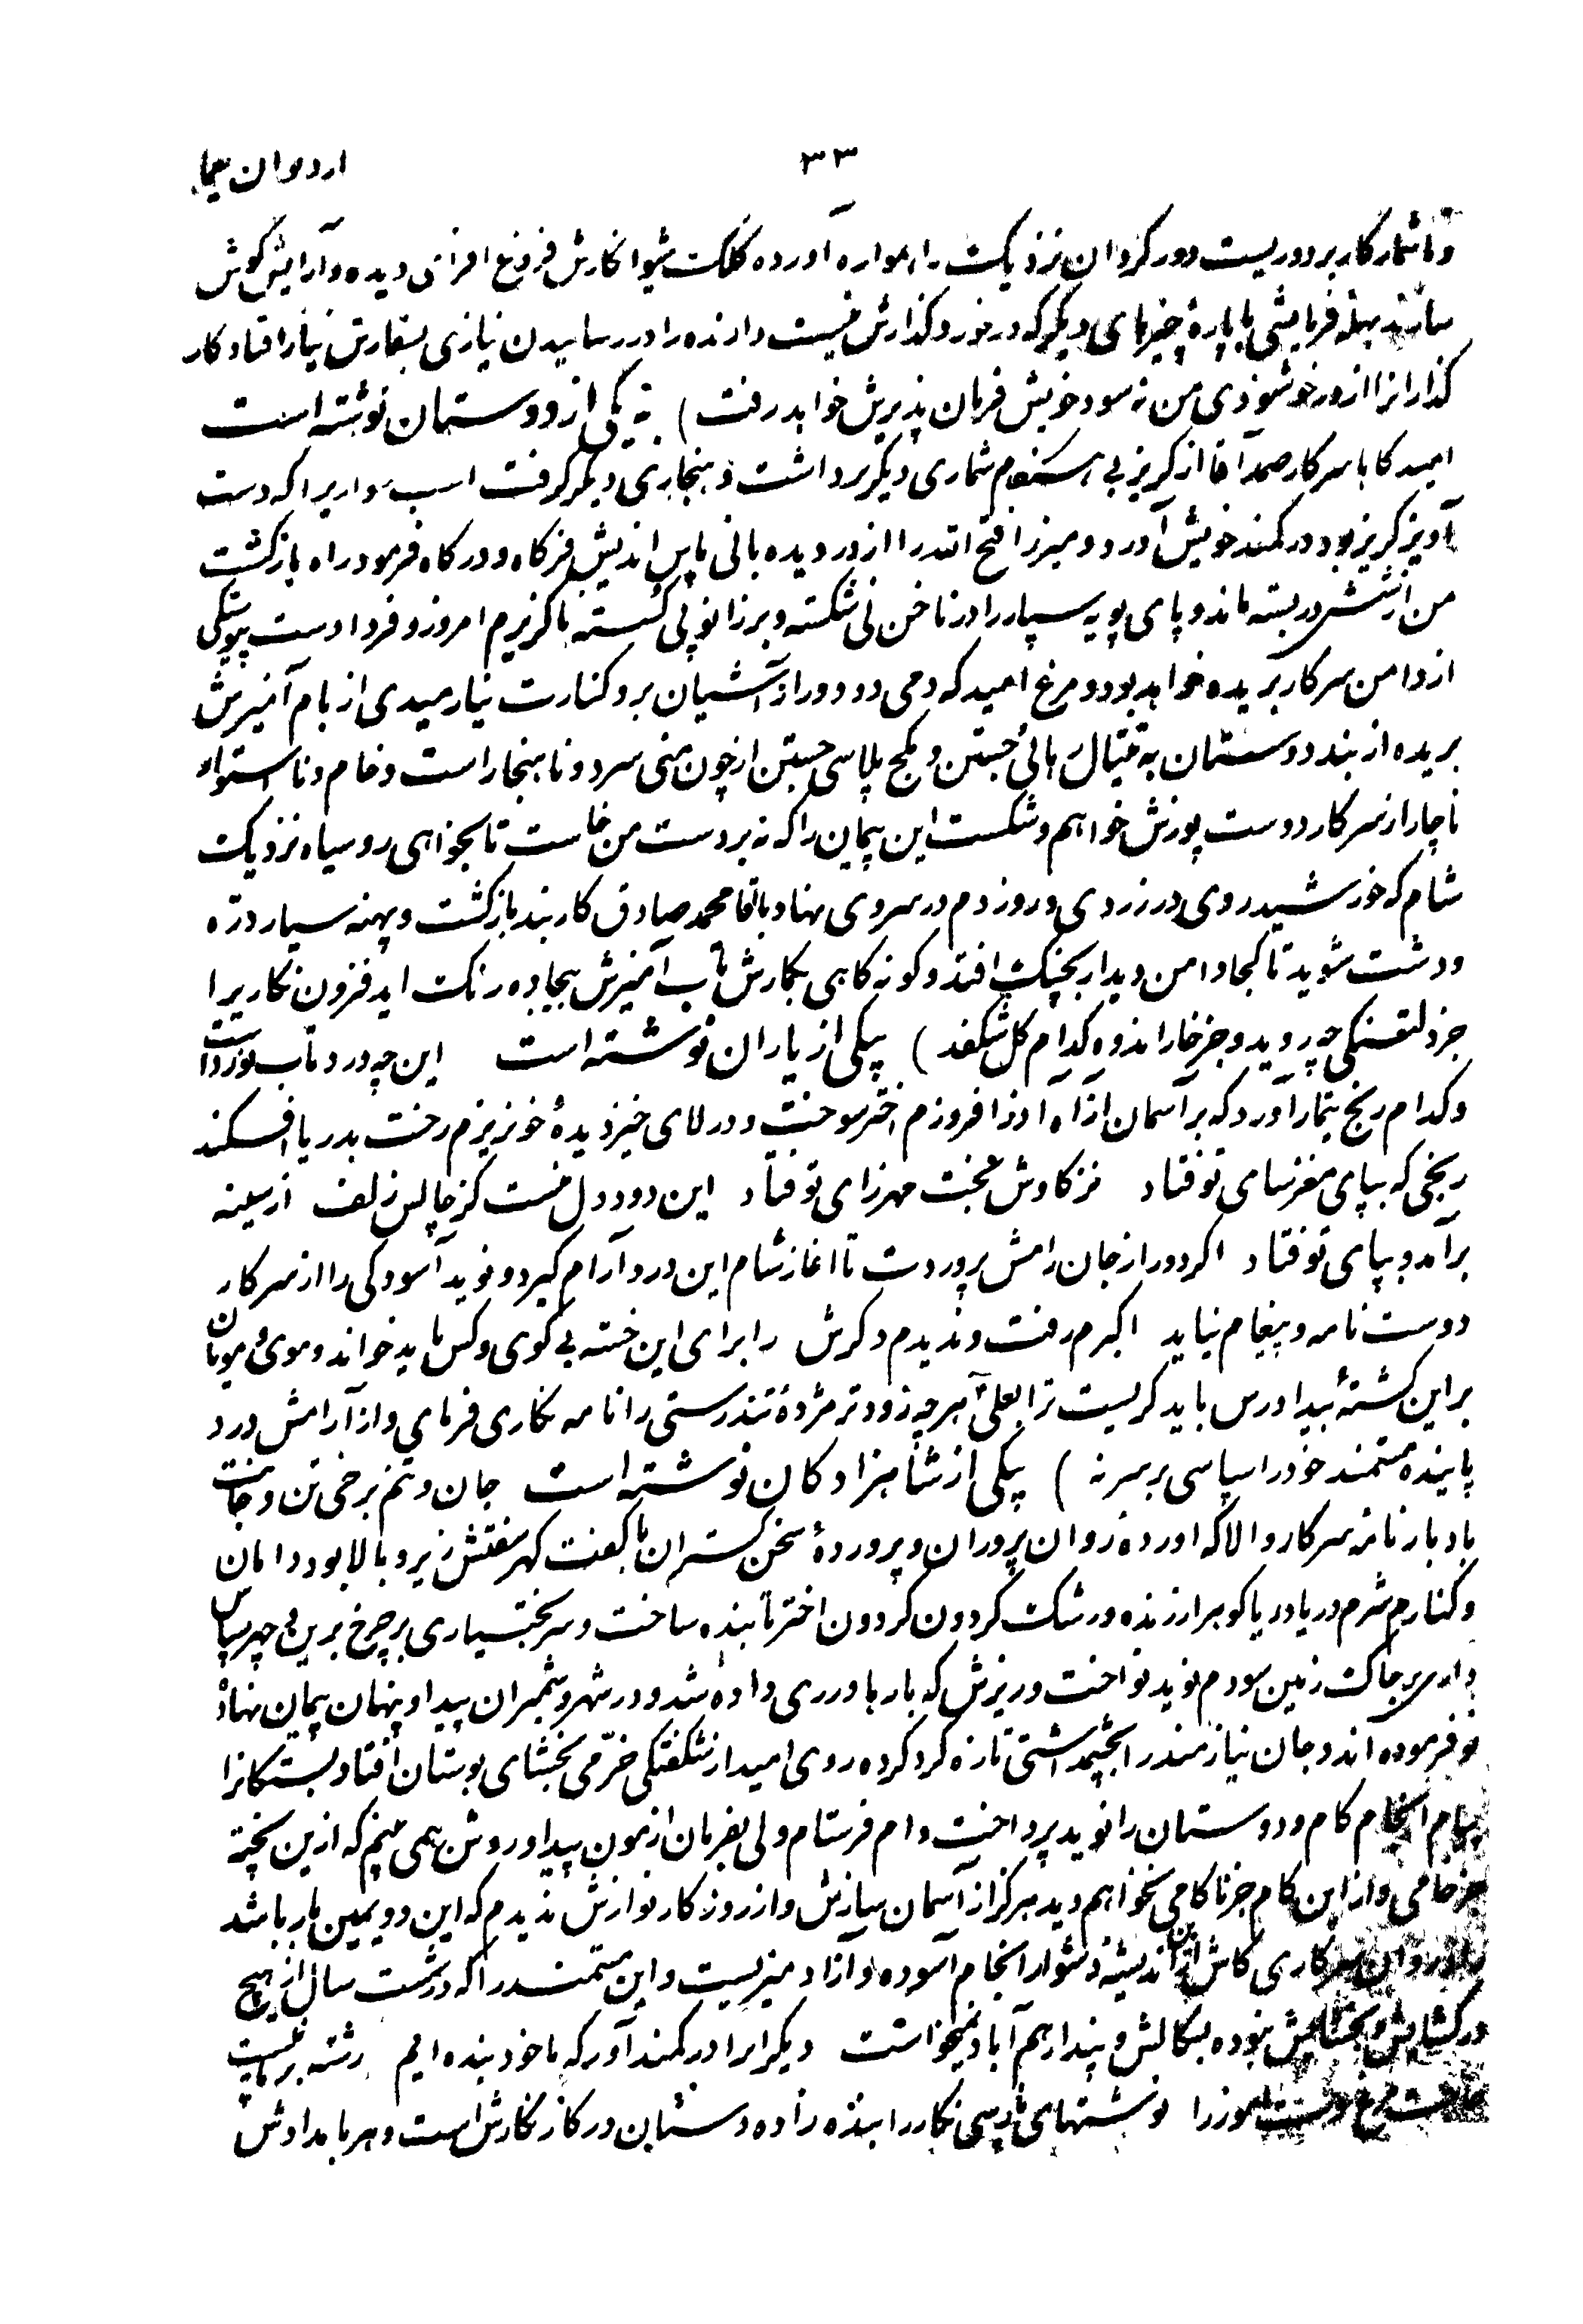 ۳۳
و ماشمار کار بر دوریست دور کردان نزدیک را همواره آورده کلک شیوا نکارش فروغ افزای دیده و آرایش کوش
سازند بهله فرمایشی با پارهٔ چیزهای دیکر که در خورد کذارش نیست دارنده را در رسانیدن نیازی بسفارش نیاز افتاد کار
کذارانرا از در خوشنودی من نه سود خویش فرمان پذیرش خواهد رفت ) به یکی از دوستمان نوشته است
امید کاها سرکار صمد آقا از کریز بی هنکام شماری دیکر برداشت و هنجاری دیکر کرفت اسب سواریرا که دست
آویز کریز بود در کمند خویش آورد و میرزا فتح الله را از در دیده بانی پاس اندیش فرکاه و درکاه فرمود راه بازکشت
من از شش در بسته ماند و پای پویه سپار را در ناخن نی شکسته و بر زانو پی کسسته ناکزیرم امروز و فردا دست پیوستکی
از دامن سرکار بریده خواهد بود و مرغ امید که دمی دو دور از آشیان بر و کنارت نیارمیدی از بام آمیزش
بریده از بند دوستان به تیتال رهائی جستن و کج پلاسی جستن از چون منی سرد و ناهنجار است و خام و نا استوار
ناچار از سرکار دوست پوزش خواهم و شکست این پیمان را که نه بر دست من خاست تا بخواهی رو سیاه نزدیک
شام که خورشید روی در زردی و روز دم در سردی نهاد با آقا محمد صادق کاربند بازکشت و پهنه سپار دره
و دشت شوید تا کجا دامن دیدار بچنک افتد و کونه کاهی بکارش تاب آمیزش بیجاده رنک اید فزون نکاریرا
جز دلتنکی چه روید و جز خار اندوه کدام کل شکفد ) بیکی از یاران نوشته است این چه درد تاب نورد است
و کدام رنج تیمار آورد که بر آسمان از آه آذر افروزم اختر سوخت و در لای خیز دیدهٔ خونریزم رخت بدریا افکند
رنجی که بپای مغز سای تو فتاد نز کاوش بخت مهرزای تو فتاد این دود دل منست کز چالش زلف از سینه
برآمد و بپای تو فتاد اکر دور از جان رامش پروردت تا اغاز شام این درد آرام کیرد و نوید آسودکی را از سرکار
دوست نامه و پیغام نیاید اکبرم رفت و ندیدم دکرش را برای این خسته بی کوی و کس باید خواند و موی مویان
بر این کشتهٔ بیدادرس باید کریست ترا بعلی هر چه زودتر مژدهٔ تندرستی را نامه نکاری فرمای و از آرامش درد
پایندهٔ مستمند خود را سپاسی بر سر نه ) بیکی از شاهزادکان نوشته است جان و تنم برخی تن و جانت
باد بارنامه سرکار والا که آورده روان پروران و پروردهٔ سخن کستران ناکفت کهر سفتش زیر و بالا بود دامان
و کنارم شرم دریا دریا کوهر ارزنده و رشک کردون کردون اختر تابنده ساخت و سر بختیاری بر چرخ برین و چهر سپاس
داری بر خاک زمین سودم نوید نواخت و ریزش که بارها در ری داده شد و در شهر و شمیران پیدا و پنهان پیمان نهاد
نو فرموده اند و جان نیازمند را بچشمداشتی تازه کرد کرده روی امید از شکفتکی خرمی بخشای بوستان افتاد بستکانرا
پیام انجام کام و دوستان را نوید پرداخت وام فرستام ولی بفرمان آزمون پیدا و روشن همی بینم که از این پخته
جز خامی و از این کام جز ناکامی نخواهم دید هرکز از آسمان سازش و از روزکار نوازش ندیدم که این دویمین بار باشد
کاش از این اندیشهٔ دشوار انجام آسوده و آزاد میزیست و این مستمند را که در شست سال از هیچ
در کشایش و بخشایش نبوده بسکالش و پندار هم آباد نمیخواست دیکرانرا در کمند آور که ما خود بنده ایم
نوشتهای پارسی نکار را بنده زاده دستان در کار نکارش است و هر بامدادش